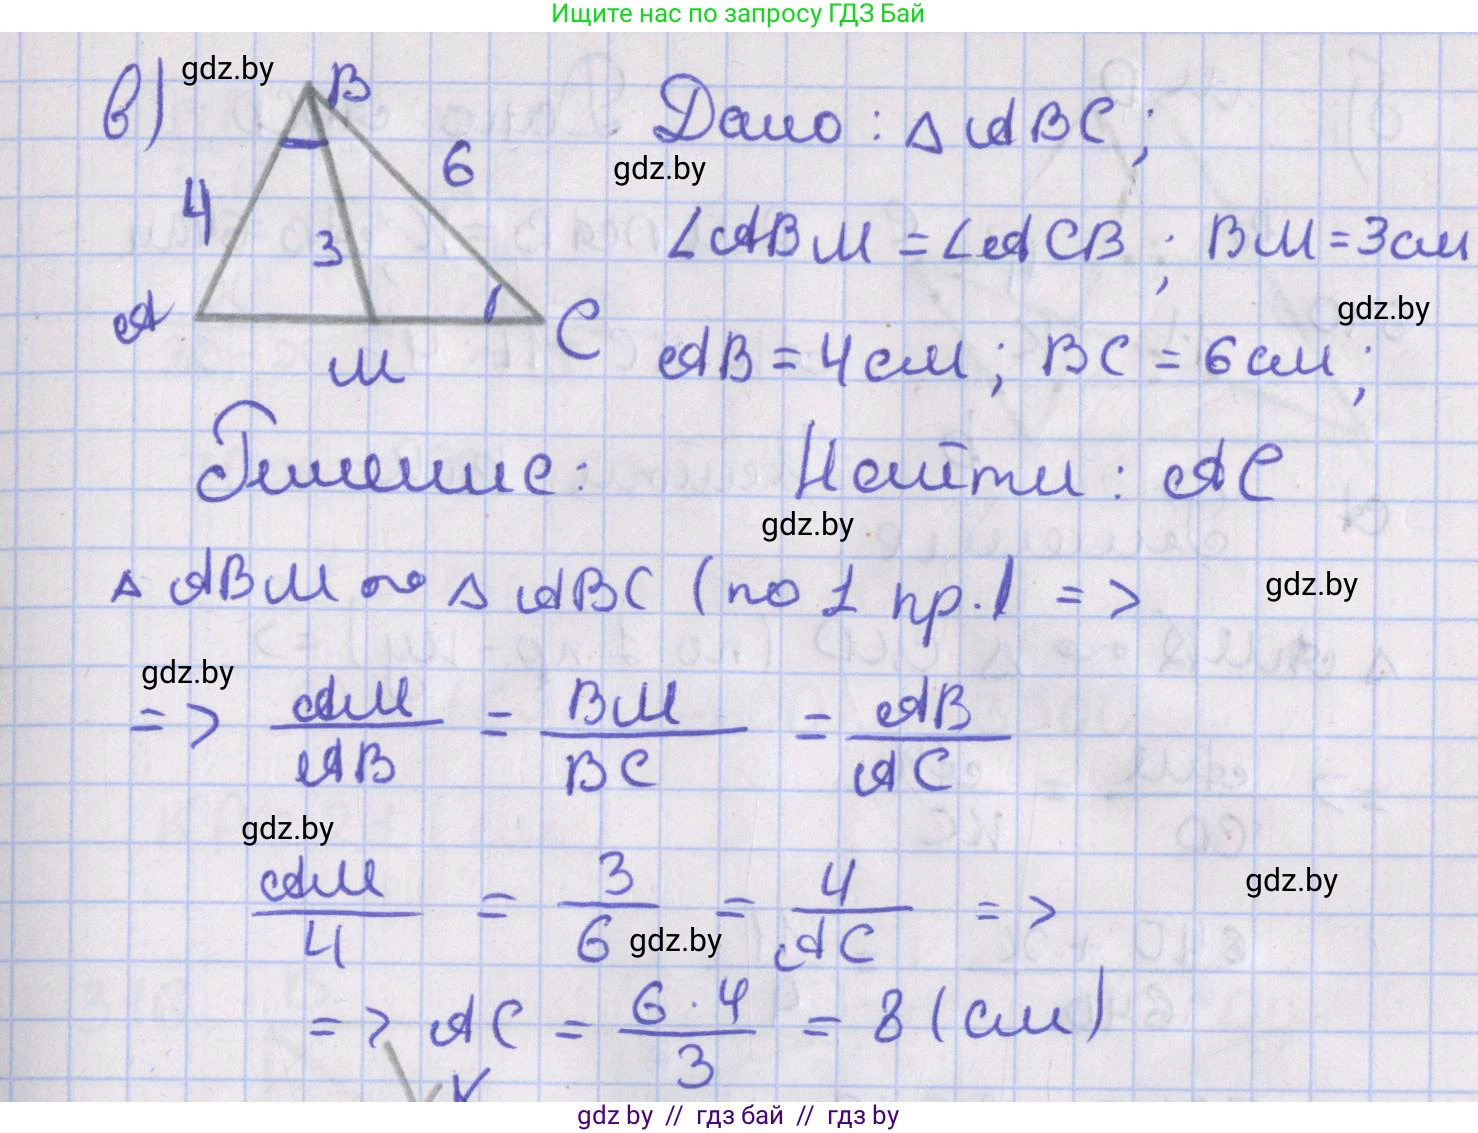 Ищите нас по запросу ГДЗ Бай
в)
gdz.by
B
4
6
3
A
M
C
Дано: △ ABC;
gdz.by
∠ABM = ∠ACB; BM = 3см
gdz.by
AB = 4см; BC = 6см;
Решение:
Найти: AC
gdz.by
△ ABM ∾ △ ABC (по 1 пр.) =>
gdz.by
gdz.by
=> AM/AB = BM/BC = AB/AC
gdz.by
AM/4 = 3/6 = 4/AC =>
gdz.by
gdz.by
=> AC = 6·4/3 = 8 (см)
K
gdz by // гдз бай // гдз by